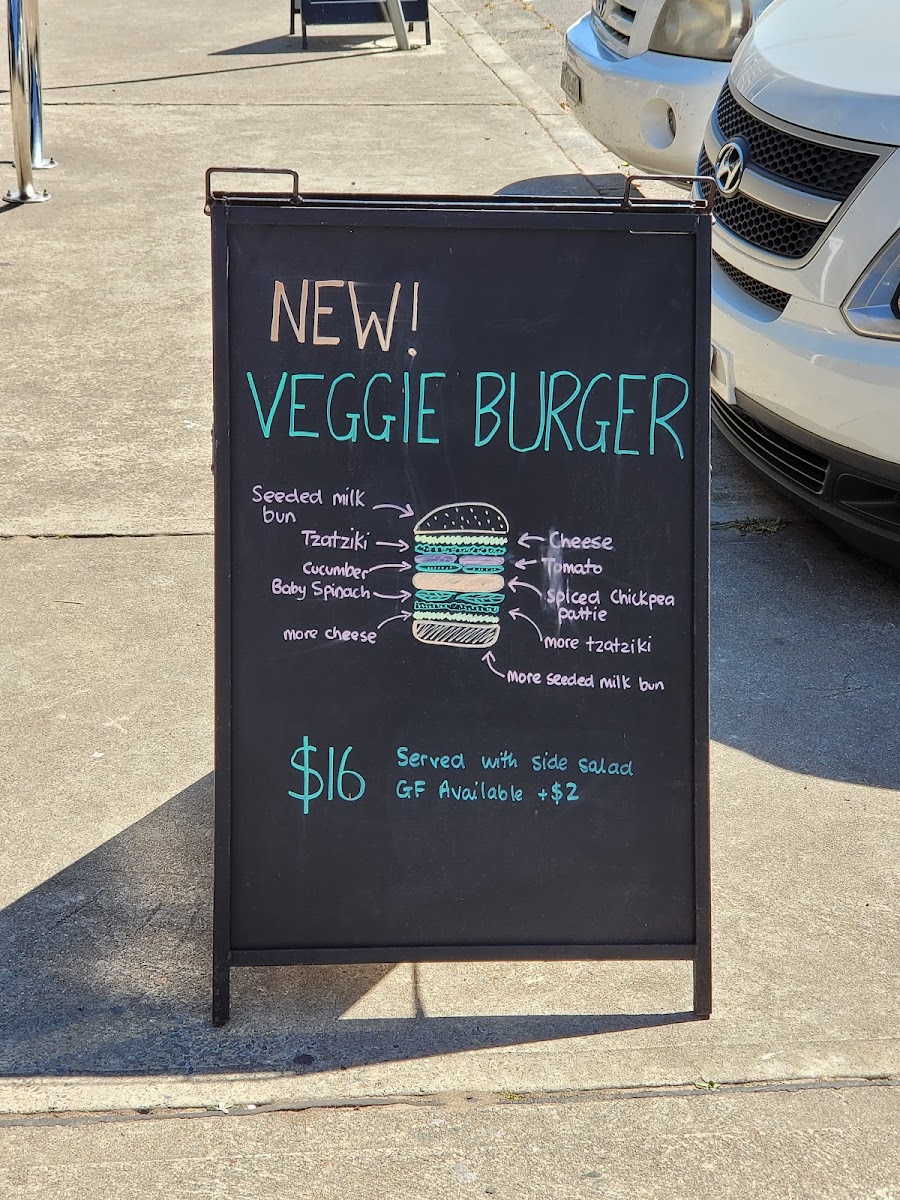 NEW!
VEGGIE BURGER
Seeded milk
bun
Tzatziki
Cucumber
Baby Spinach
more cheese
Cheese
Tomato
spiced Chickpea
pattie
more tzatziki
more seeded milk bun
$16
Served with side salad
GF Available +$2